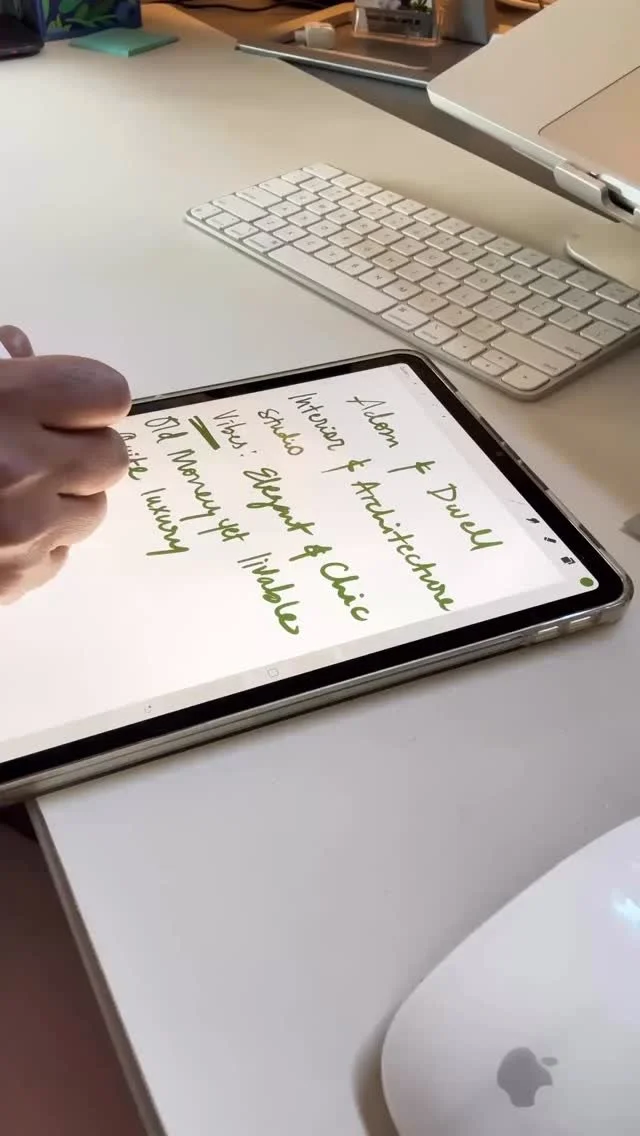 Adorn & Dwell
Interior & Architecture
studio
Vibes: Elegant & Chic
Old Money yet livable
Quite luxury